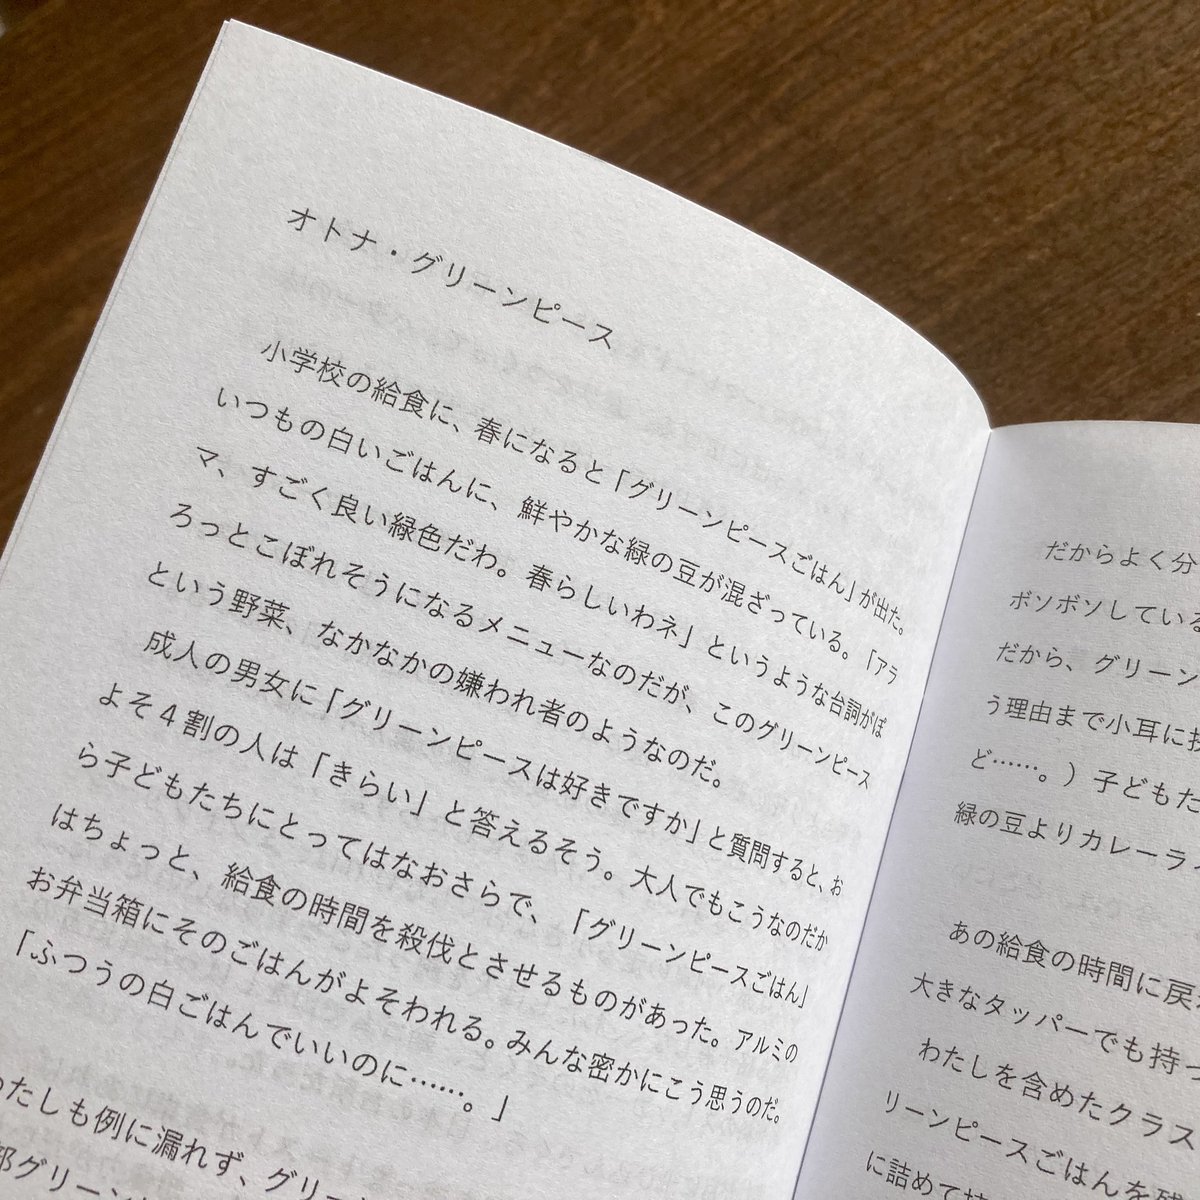 オトナ・グリーンピース
小学校の給食に、春になると「グリーンピースごはん」が出た。
いつもの白いごはんに、鮮やかな緑の豆が混ざっている。「アラ
マ、すごく良い緑色だわ。春らしいわネ」というような台詞がぽ
ろっとこぼれそうになるメニューなのだが、このグリーンピース
という野菜、なかなかの嫌われ者のようなのだ。
成人の男女に「グリーンピースは好きですか」と質問すると、お
よそ４割の人は「きらい」と答えるそう。大人でもこうなのだか
ら子どもたちにとってはなおさらで、「グリーンピースごはん」
はちょっと、給食の時間を殺伐とさせるものがあった。アルミの
お弁当箱にそのごはんがよそわれる。みんな密かにこう思うのだ。
「ふつうの白ごはんでいいのに……。」
わたしも例に漏れず、グリー
グリーン
だからよく分
ボソボソしている
だから、グリーン
う理由まで小耳に
ど……。）子どもた
緑の豆よりカレーラ
あの給食の時間に戻
大きなタッパーでも持っ
わたしを含めたクラス
リーンピースごはんを
に詰めて